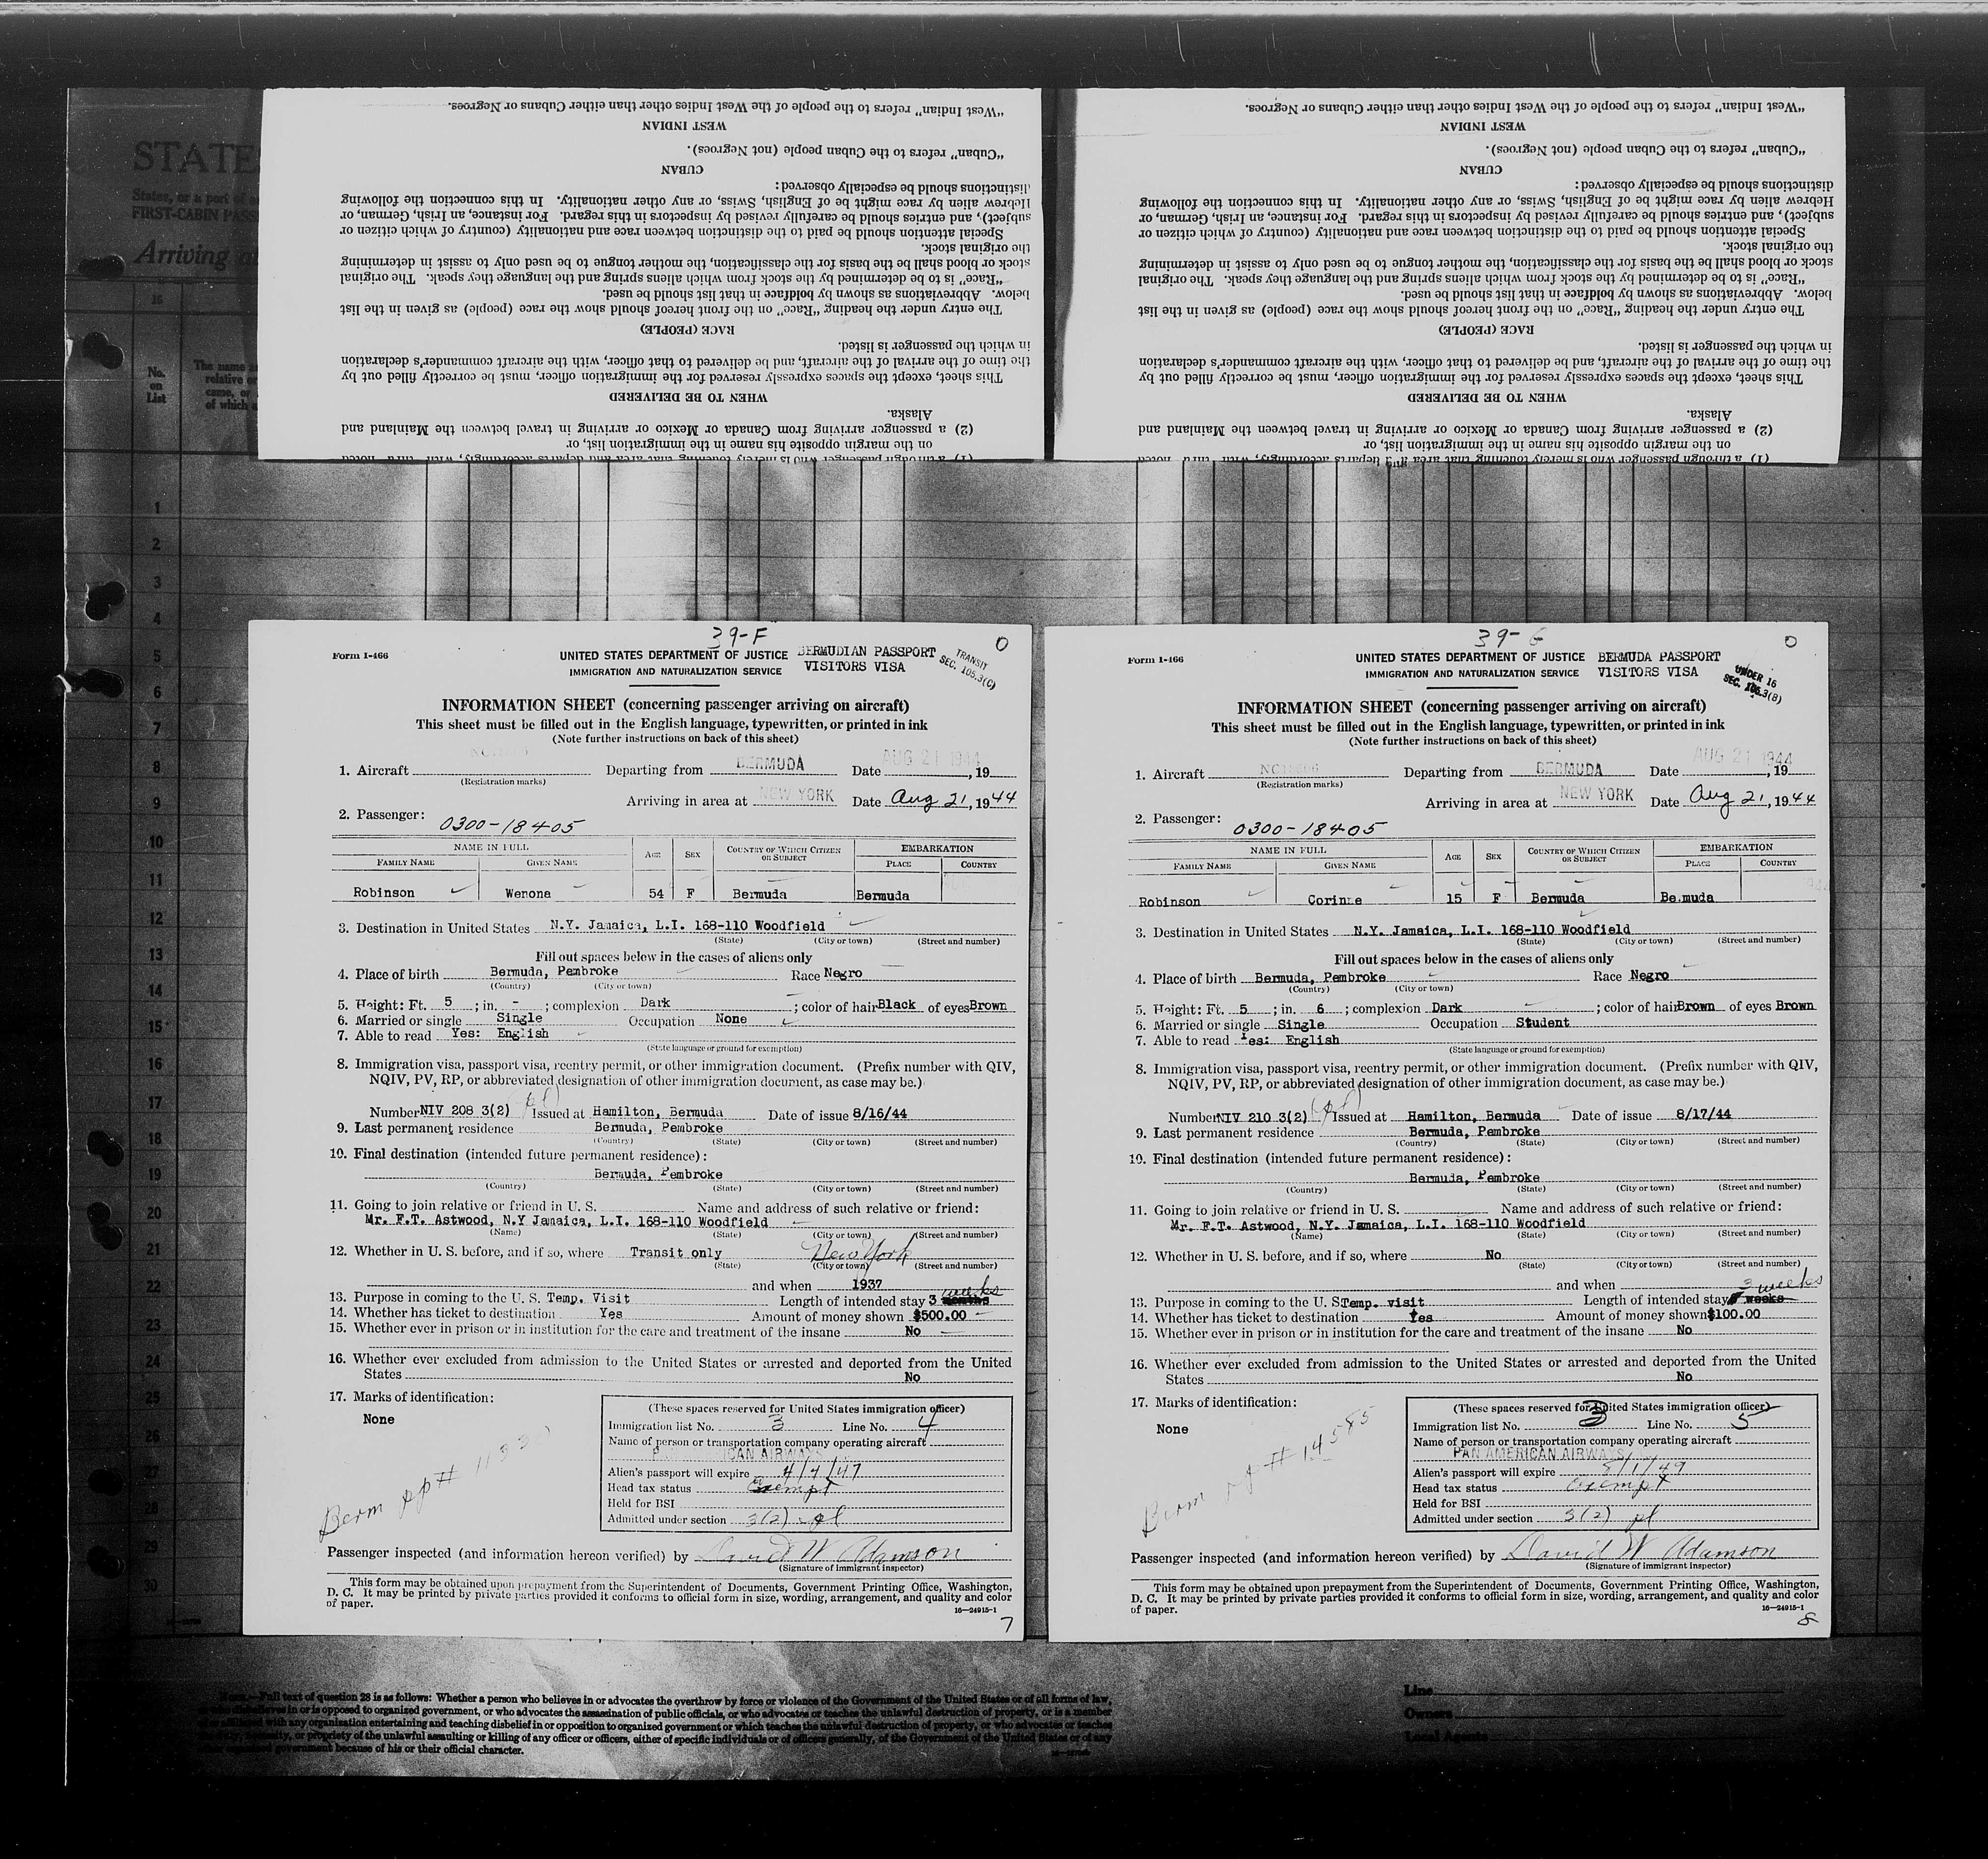 "West Indian" refers to the people of the West Indies other than either Cubans or Negroes.
WEST INDIAN
"Cuban" refers to the Cuban people (not Negroes).
CUBAN
distinctions should be especially observed:
Hebrew alien by race might be of English, Swiss, or any other nationality. In this connection the following
subject), and entries should be carefully revised by inspectors in this regard. For instance, an Irish, German, or
Special attention should be paid to the distinction between race and nationality (country of which citizen or
the original stock.
stock or blood shall be the basis for the classification, the mother tongue to be used only to assist in determining
"Race" is to be determined by the stock from which aliens spring and the language they speak. The original
below. Abbreviations as shown by boldface in that list should be used.
The entry under the heading "Race" on the front hereof should show the race (people) as given in the list
RACE (PEOPLE)
in which the passenger is listed.
the time of the arrival of the aircraft, and be delivered to that officer, with the aircraft commander's declaration
This sheet, except the spaces expressly reserved for the immigration officer, must be correctly filled out by
WHEN TO BE DELIVERED
Alaska.
(2) a passenger arriving from Canada or Mexico or arriving in travel between the Mainland and
on the margin opposite his name in the immigration list, or
(1) a through passenger who is merely touching that area and departs accordingly, with "thru" noted
"West Indian" refers to the people of the West Indies other than either Cubans or Negroes.
WEST INDIAN
"Cuban" refers to the Cuban people (not Negroes).
CUBAN
distinctions should be especially observed:
Hebrew alien by race might be of English, Swiss, or any other nationality. In this connection the following
subject), and entries should be carefully revised by inspectors in this regard. For instance, an Irish, German, or
Special attention should be paid to the distinction between race and nationality (country of which citizen or
the original stock.
stock or blood shall be the basis for the classification, the mother tongue to be used only to assist in determining
"Race" is to be determined by the stock from which aliens spring and the language they speak. The original
below. Abbreviations as shown by boldface in that list should be used.
The entry under the heading "Race" on the front hereof should show the race (people) as given in the list
RACE (PEOPLE)
in which the passenger is listed.
the time of the arrival of the aircraft, and be delivered to that officer, with the aircraft commander's declaration
This sheet, except the spaces expressly reserved for the immigration officer, must be correctly filled out by
WHEN TO BE DELIVERED
Alaska.
(2) a passenger arriving from Canada or Mexico or arriving in travel between the Mainland and
on the margin opposite his name in the immigration list, or
(1) a through passenger who is merely touching that area and departs accordingly, with "thru" noted
STATE
States, or a part of
FIRST-CABIN PASS
Arriving
16
No. on List
The name
relative or
came, or
of which
1
2
3
4
5
6
7
8
9
10
11
12
13
14
15
16
17
18
19
20
21
22
23
24
25
26
27
28
29
30
39-F
0
Form I-466
UNITED STATES DEPARTMENT OF JUSTICE BERMUDIAN PASSPORT
IMMIGRATION AND NATURALIZATION SERVICE VISITORS VISA
TRANSIT
SEC. 105.3(C)
INFORMATION SHEET (concerning passenger arriving on aircraft)
This sheet must be filled out in the English language, typewritten, or printed in ink
(Note further instructions on back of this sheet)
1. Aircraft Departing from BERMUDA Date AUG 21 1944, 19
(Registration marks)
Arriving in area at NEW YORK Date Aug 21, 1944
2. Passenger: 0300-18405
NAME IN FULL AGE SEX COUNTRY OF WHICH CITIZEN OR SUBJECT EMBARKATION
FAMILY NAME GIVEN NAME PLACE COUNTRY
Robinson Wenona 54 F Bermuda Bermuda
3. Destination in United States N.Y. Jamaica, L.I. 168-110 Woodfield
(State) (City or town) (Street and number)
Fill out spaces below in the cases of aliens only
4. Place of birth Bermuda, Pembroke Race Negro
(Country) (City or town)
5. Height: Ft. 5 ; in. - ; complexion Dark ; color of hair Black of eyes Brown
6. Married or single Single Occupation None
7. Able to read Yes: English
(State language or ground for exemption)
8. Immigration visa, passport visa, reentry permit, or other immigration document. (Prefix number with QIV,
NQIV, PV, RP, or abbreviated designation of other immigration document, as case may be.)
Number NIV 208 3(2) (pl) Issued at Hamilton, Bermuda Date of issue 8/16/44
9. Last permanent residence Bermuda, Pembroke
(Country) (State) (City or town) (Street and number)
10. Final destination (intended future permanent residence):
Bermuda, Pembroke
(Country) (State) (City or town) (Street and number)
11. Going to join relative or friend in U. S. Name and address of such relative or friend:
Mr. F.T. Astwood, N.Y Jamaica, L.I. 168-110 Woodfield
(Name) (State) (City or town) (Street and number)
12. Whether in U. S. before, and if so, where Transit only New York
(State) (City or town) (Street and number)
and when 1937
13. Purpose in coming to the U. S. Temp. Visit Length of intended stay 3 months weeks
14. Whether has ticket to destination Yes Amount of money shown $500.00
15. Whether ever in prison or in institution for the care and treatment of the insane No
16. Whether ever excluded from admission to the United States or arrested and deported from the United
States No
17. Marks of identification:
None
Berm pp#
(These spaces reserved for United States immigration officer)
Immigration list No. 3 Line No. 4
Name of person or transportation company operating aircraft
PAN AMERICAN AIRWAYS
Alien's passport will expire 4/4/47
Head tax status Exempt
Held for BSI
Admitted under section 3(2) pl
Passenger inspected (and information hereon verified) by David W Adamson
(Signature of immigrant inspector)
This form may be obtained upon prepayment from the Superintendent of Documents, Government Printing Office, Washington,
D. C. It may be printed by private parties provided it conforms to official form in size, wording, arrangement, and quality and color
of paper.
16—24915-1
7
39-G
0
Form I-466
UNITED STATES DEPARTMENT OF JUSTICE BERMUDA PASSPORT
IMMIGRATION AND NATURALIZATION SERVICE VISITORS VISA
UNDER 16
SEC. 105.3(B)
INFORMATION SHEET (concerning passenger arriving on aircraft)
This sheet must be filled out in the English language, typewritten, or printed in ink
(Note further instructions on back of this sheet)
1. Aircraft Departing from BERMUDA Date AUG 21 1944, 19
(Registration marks)
Arriving in area at NEW YORK Date Aug 21, 1944
2. Passenger: 0300-18405
NAME IN FULL AGE SEX COUNTRY OF WHICH CITIZEN OR SUBJECT EMBARKATION
FAMILY NAME GIVEN NAME PLACE COUNTRY
Robinson Corinne 15 F Bermuda Bermuda
3. Destination in United States N.Y. Jamaica, L.I. 168-110 Woodfield
(State) (City or town) (Street and number)
Fill out spaces below in the cases of aliens only
4. Place of birth Bermuda, Pembroke Race Negro
(Country) (City or town)
5. Height: Ft. 5 ; in. 6 ; complexion Dark ; color of hair Brown of eyes Brown
6. Married or single Single Occupation Student
7. Able to read Yes: English
(State language or ground for exemption)
8. Immigration visa, passport visa, reentry permit, or other immigration document. (Prefix number with QIV,
NQIV, PV, RP, or abbreviated designation of other immigration document, as case may be.)
Number NIV 210 3(2) (pl) Issued at Hamilton, Bermuda Date of issue 8/17/44
9. Last permanent residence Bermuda, Pembroke
(Country) (State) (City or town) (Street and number)
10. Final destination (intended future permanent residence):
Bermuda, Pembroke
(Country) (State) (City or town) (Street and number)
11. Going to join relative or friend in U. S. Name and address of such relative or friend:
Mr. F.T. Astwood, N.Y. Jamaica, L.I. 168-110 Woodfield
(Name) (State) (City or town) (Street and number)
12. Whether in U. S. before, and if so, where No
(State) (City or town) (Street and number)
and when
13. Purpose in coming to the U. S. Temp. visit Length of intended stay weeks 3 weeks
14. Whether has ticket to destination Yes Amount of money shown $100.00
15. Whether ever in prison or in institution for the care and treatment of the insane No
16. Whether ever excluded from admission to the United States or arrested and deported from the United
States No
17. Marks of identification:
None
Berm pp # 14585
(These spaces reserved for United States immigration officer)
Immigration list No. 3 Line No. 5
Name of person or transportation company operating aircraft
PAN AMERICAN AIRWAYS
Alien's passport will expire 8/1/49
Head tax status Exempt
Held for BSI
Admitted under section 3(2) pl
Passenger inspected (and information hereon verified) by David W Adamson
(Signature of immigrant inspector)
This form may be obtained upon prepayment from the Superintendent of Documents, Government Printing Office, Washington,
D. C. It may be printed by private parties provided it conforms to official form in size, wording, arrangement, and quality and color
of paper.
16—24915-1
8
Full text of question 28 is as follows: Whether a person who believes in or advocates the overthrow by force or violence of the Government of the United States or of all forms of law,
or who disbelieves in or is opposed to organized government, or who advocates the assassination of public officials, or who advocates or teaches the unlawful destruction of property, or is a member
of or affiliated with any organization entertaining and teaching disbelief in or opposition to organized government or which teaches the unlawful destruction of property, or who advocates or teaches
the duty, necessity, or propriety of the unlawful assaulting or killing of any officer or officers, either of specific individuals or of officers generally, of the Government of the United States or of any
other organized government because of his or their official character.
Line
Owners
Local Agents